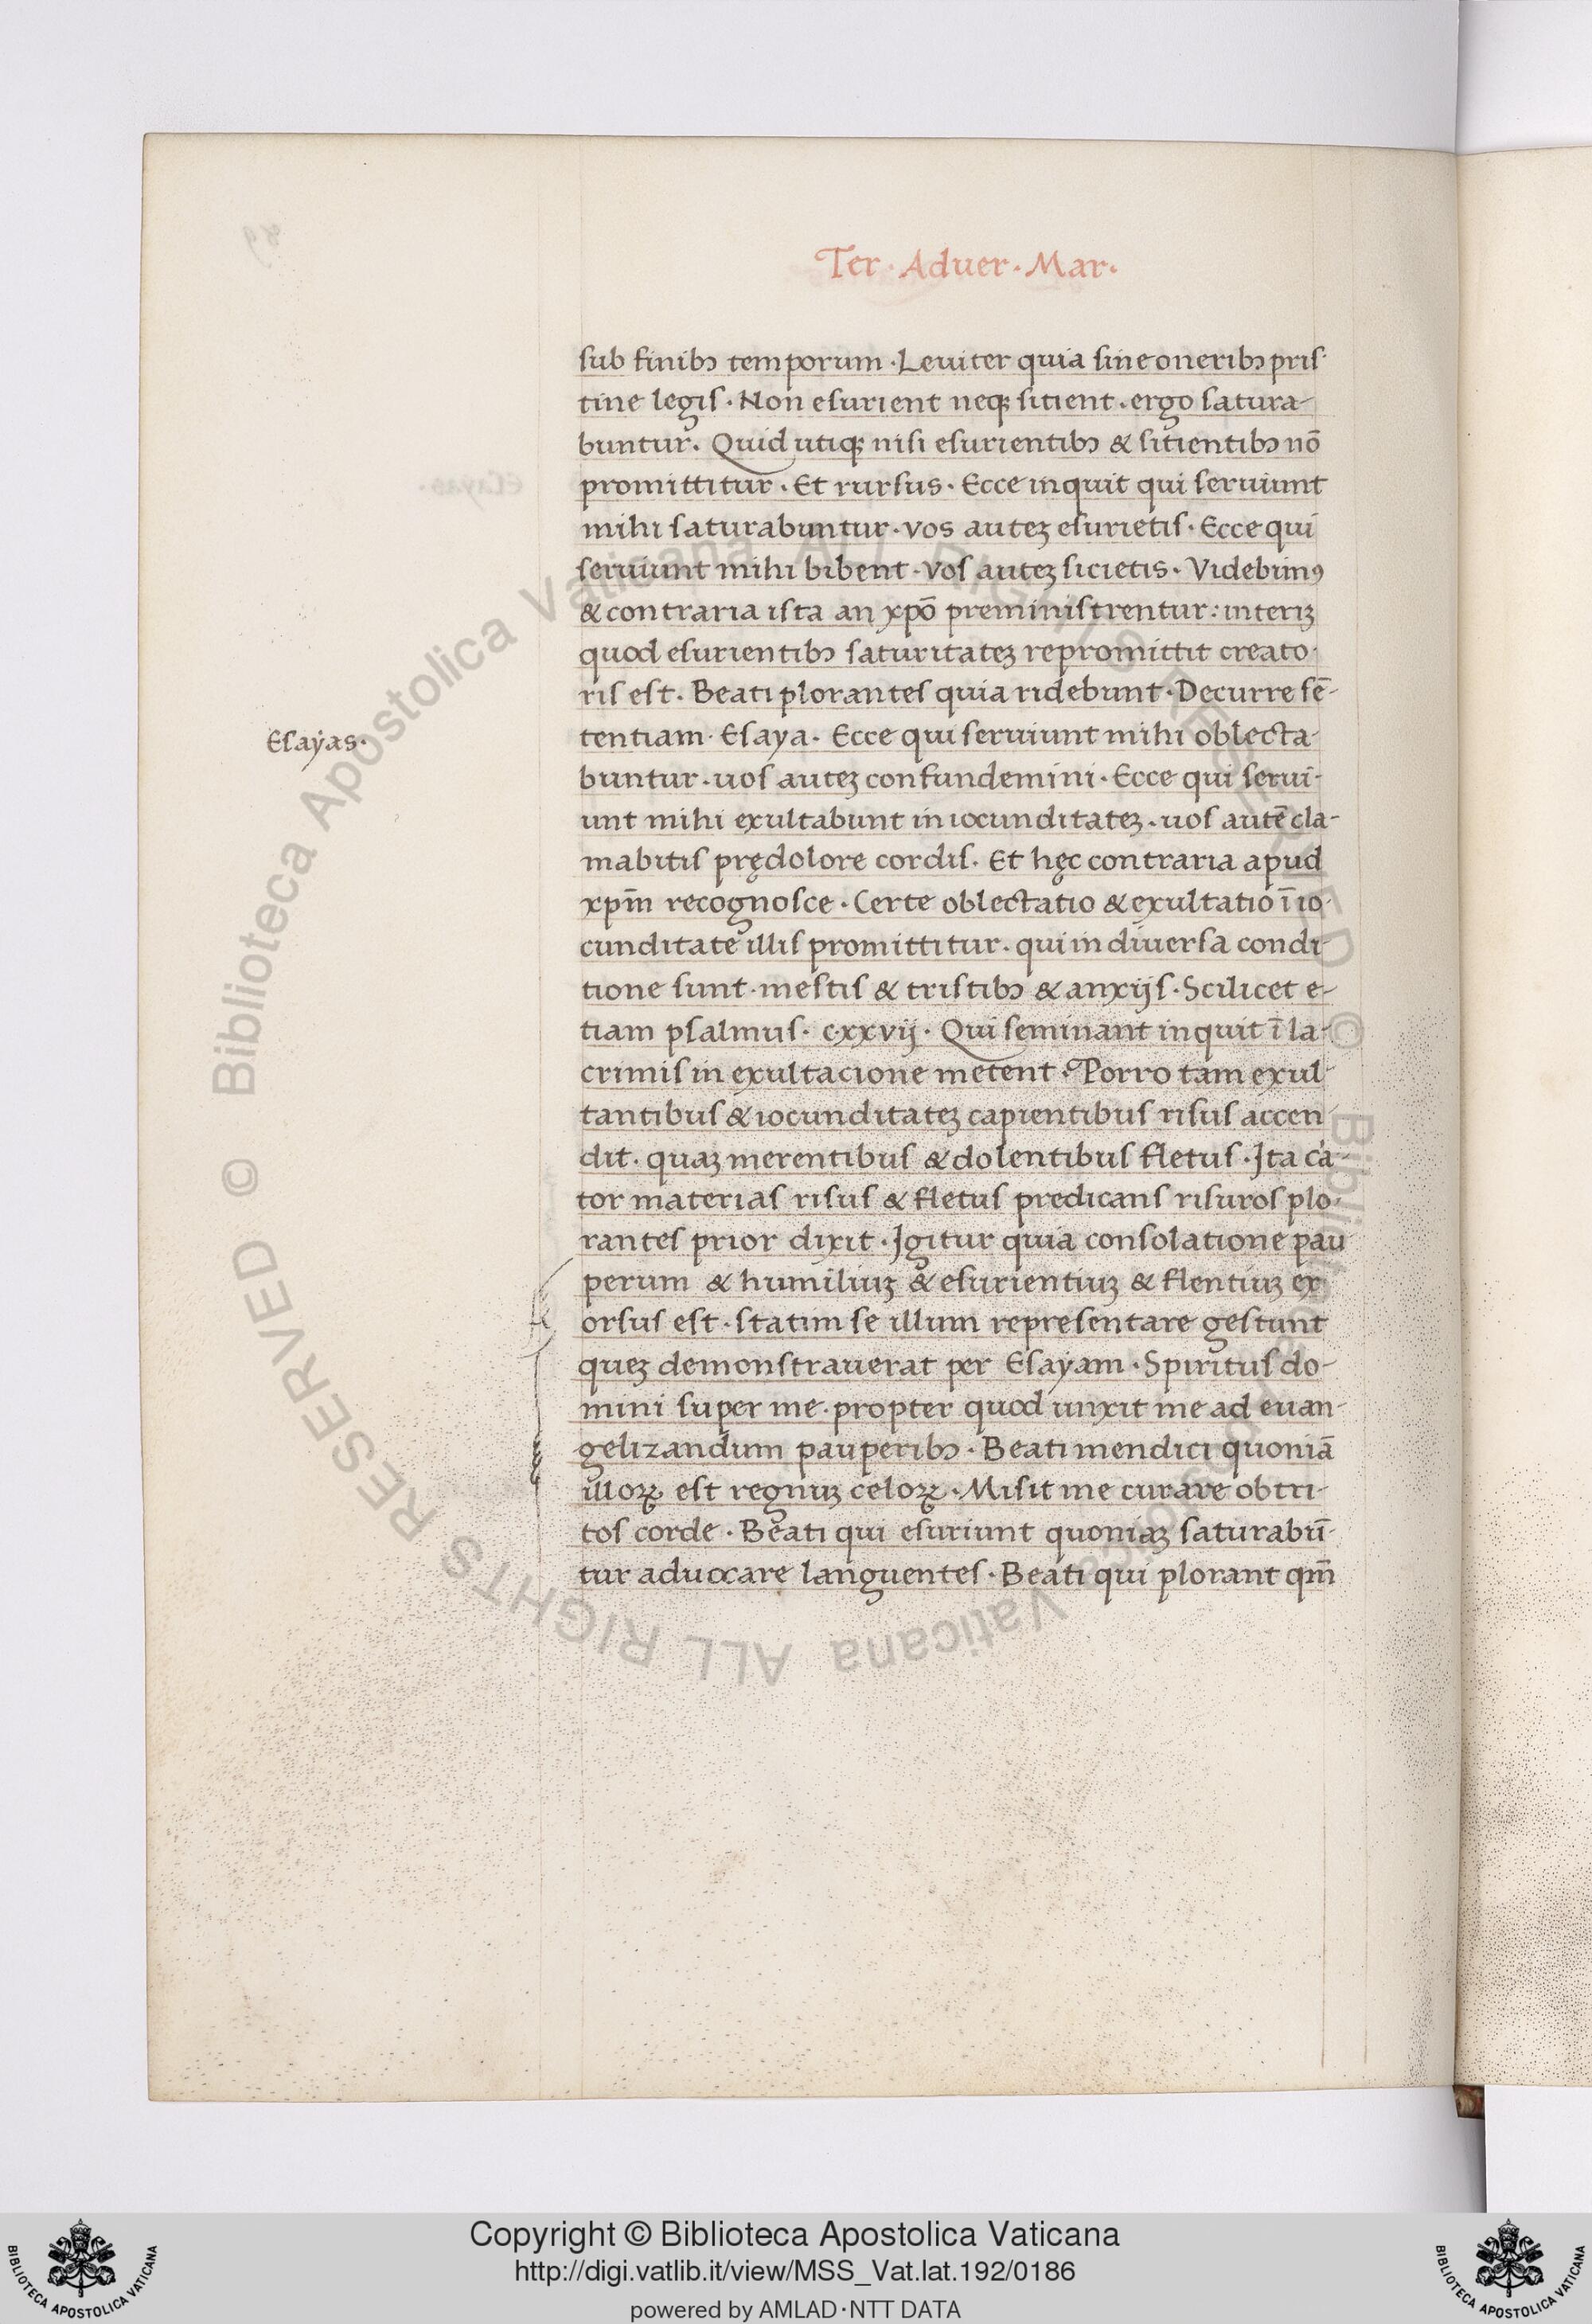 Ter · Aduer · Mar ·
sub finibꝫ temporum · Leuiter quia sine oneribꝫ pris-
tine legis · Non esurient neqꝫ sitient · ergo satura-
buntur · Quid utiqꝫ nisi esurientibꝫ & sitientibꝫ nō
promittitur · Et rursus · Ecce inquit qui seruiunt
mihi saturabuntur · vos auteꝫ esurietis · Ecce qui
seruiunt mihi bibent · vos auteꝫ sicietis · Videbimꝰ
& contraria ista an xpō preministrentur : interiꝫ
quod esurientibꝫ saturitateꝫ repromittit creato-
ris est · Beati plorantes quia ridebunt · Decurre sē-
tentiam · Esaya · Ecce qui seruiunt mihi oblecta-
Esaÿas ·
buntur · uos auteꝫ confundemini · Ecce qui serui-
unt mihi exultabunt in iocunditateꝫ · uos autē cla-
mabitis prędolore cordis · Et hęc contraria apud
xpm̄ recognosce · Certe oblectatio & exultatio ī io-
cunditate illis promittitur · qui in diuersa condi-
tione sunt · mestis & tristibꝫ & anxijs · Scilicet e-
tiam psalmus · cxxvij · Qui seminant inquit ī la-
crimis in exultacione metent · Porro tam exul-
tantibus & iocunditateꝫ capientibus risus accen-
dit · quaꝫ merentibus & dolentibus fletus · Ita c̀a-
tor materias risus & fletus predicans risuros plo-
rantes prior dixit · Igitur quia consolatione pau
perum & humiliuꝫ & esurientiuꝫ & flentiuꝫ ex
orsus est · statim se illum representare gestunt
queꝫ demonstrauerat per Esaÿam · Spiritus do-
mini super me · propter quod unxit me ad euan-
gelizandum pauperibꝫ · Beati mendici quoniā
illoꝝ est regnuꝫ celoꝝ · Misit me curare obtri-
tos corde · Beati qui esuriunt quoniaꝫ saturabū-
tur aduocare languentes · Beati qui plorant qm̄
Copyright © Biblioteca Apostolica Vaticana
http://digi.vatlib.it/view/MSS_Vat.lat.192/0186
powered by AMLAD·NTT DATA
BIBLIOTECA APOSTOLICA VATICANA
BIBLIOTECA APOSTOLICA VATICANA
© Biblioteca Apostolica Vaticana ALL RIGHTS RESERVED © Biblioteca Apostolica Vaticana ALL RIGHTS RESERVED